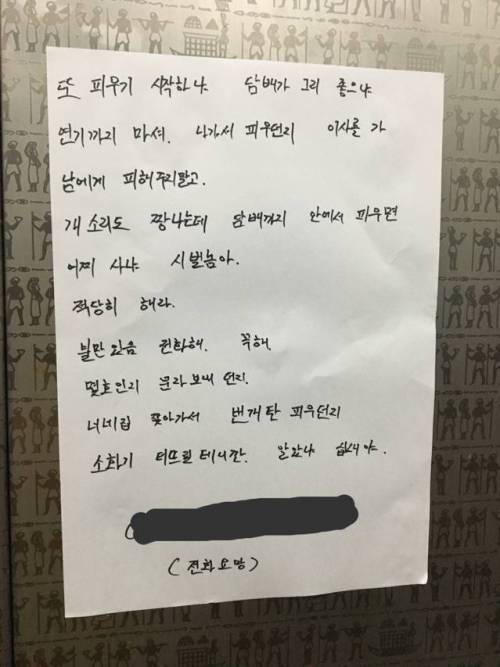 또 피우기 시작하냐 담배가 그리 좋으냐
연기까지 마셔. 나가서 피우던지 이사를 가
남에게 피해주지말고.
개 소리도 짱나는데 담배까지 안에서 피우면
어찌 사냐 시벌놈아.
적당히 해라.
불만 있음 전화해. 꼭해
몇호인지 문자 보내 던지.
너네집 찾아가서 번개탄 피우던지
소화기 터뜨릴 테니깐. 알았냐 십새야.
(전화요망)